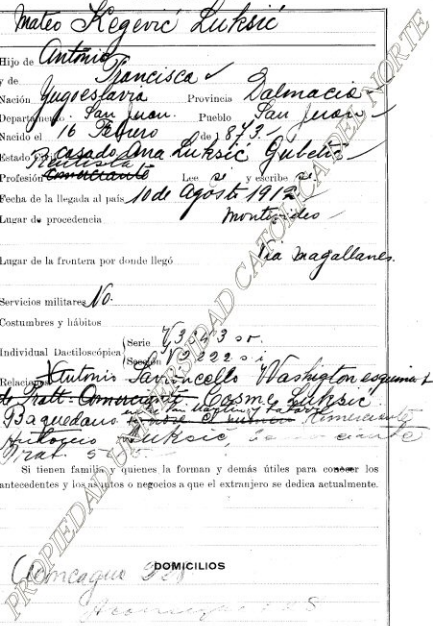 Mateo Kegević Luksić
Hijo de Antonio
y de Francisca
Nación Yugoeslavia Provincia Dalmacia
Departamento San Juan. Pueblo San Juan
Nacido el 16 Febrero de 1873.
Estado Civil casado Ana Luksić Gubelić
Profesión Rentista comerciante Lee si y escribe si
Fecha de la llegada al país 10 de Agosto 1912
Lugar de procedencia Montevideo
Lugar de la frontera por donde llegó Via Magallanes.
Servicios militares No.
Costumbres y hábitos
Individual Dactiloscópica Serie V3343
Sección V2222
Relaciones Antonio Washington esquina
Comerciante Cosme Luksic
Baquedano Comerciante
Luksic,
Prat
Si tienen familia y quienes la forman y demás útiles para conocer los
antecedentes y los asuntos o negocios a que el extranjero se dedica actualmente.
DOMICILIOS
Aconcagua
PROPIEDAD UNIVERSIDAD CATOLICA DEL NORTE